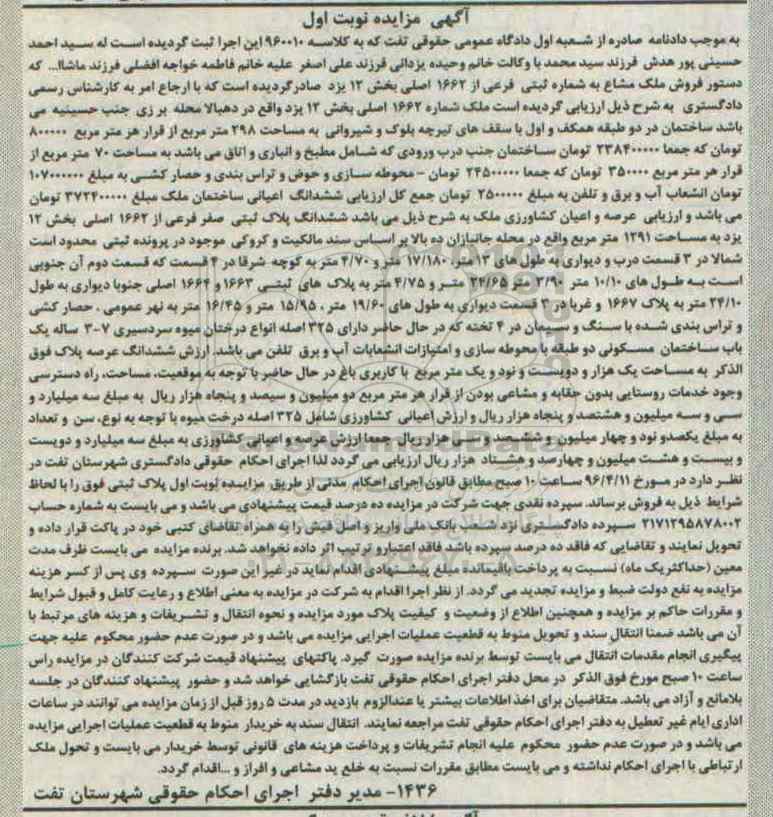 آگهی مزایده نوبت اول
به موجب دادنامه صادره از شعبه اول دادگاه عمومی حقوقی تفت که به کلاسه ۹۶۰۰۱۰ این اجرا ثبت گردیده است له سید احمد
حسینی پور هدش فرزند سید محمد با وکالت خانم وحیده یزدانی فرزند علی اصغر علیه خانم فاطمه خواجه افضلی فرزند ماشاا... که
دستور فروش ملک مشاع به شماره ثبتی فرعی از ۱۶۶۲ اصلی بخش ۱۲ یزد صادرگردیده است که با ارجاع امر به کارشناس رسمی
دادگستری به شرح ذیل ارزیابی گردیده است ملک شماره ۱۶۶۲ اصلی بخش ۱۲ یزد واقع در دهبالا محله بر زی جنب حسینیه می
باشد ساختمان در دو طبقه همکف و اول با سقف های تیرچه بلوک و شیروانی به مساحت ۲۹۸ متر مربع از قرار هز متر مربع ۸۰۰۰۰۰
تومان که جمعا ۲۳۸۴۰۰۰۰۰ تومان ساختمان جنب درب ورودی که شامل مطبخ و انباری و اتاق می باشد به مساحت ۷۰ متر مربع از
قرار هر متر مربع ۳۵۰۰۰۰ تومان که جمعا ۲۴۵۰۰۰۰۰ تومان - محوطه سازی و حوض و تراس بندی و حصار کشی به مبلغ ۱۰۷۰۰۰۰۰۰
تومان انشعاب آب و برق و تلفن به مبلغ ۲۵۰۰۰۰۰ تومان جمع کل ارزیابی ششدانگ اعیانی ساختمان ملک مبلغ ۳۷۲۴۰۰۰۰۰ تومان
می باشد و ارزیابی عرصه و اعیان کشاورزی ملک به شرح ذیل می باشد ششدانگ پلاک ثبتی صفر فرعی از ۱۶۶۲ اصلی بخش ۱۲
یزد به مساحت ۱۲۹۱ متر مربع واقع در محله جانبازان ده بالا بر اساس سند مالکیت و کروکی موجود در پرونده ثبتی محدود است
شمالا در ۳ قسمت درب و دیواری به طول های ۱۳ متر، ۱۷/۱۸۰ متر و ۴/۷۰ متر به کوچه شرقا در ۴ قسمت که قسمت دوم آن جنوبی
است به طول های ۱۰/۱۰ متر ۲/۹۰ متر ۲۴/۶۵ متر و ۴/۷۵ متر به پلاک های ثبتی ۱۶۶۳ و ۱۶۶۴ اصلی جنوبا دیواری به طول
۲۴/۱۰ متر به پلاک ۱۶۶۷ و غربا در ۳ قسمت دیواری به طول های ۱۹/۶۰ متر ، ۱۵/۹۵ متر و ۱۶/۴۵ متر به نهر عمومی . حصار کشی
و تراس بندی شده با سنگ و سیمان در ۴ تخته که در حال حاضر دارای ۳۲۵ اصله انواع درختان میوه سردسیری ۷-۳ ساله یک
باب ساختمان مسکونی دو طبقه با محوطه سازی و امتیازات انشعابات آب و برق تلفن می باشد. ارزش ششدانگ عرصه پلاک فوق
الذکر به مساحت یک هزار و دویست و نود و یک متر مربع با کاربری باغ در حال حاضر با توجه به موقعیت، مساحت، راه دسترسی
وجود خدمات روستایی بدون حقابه و مشاعی بودن از قرار هر متر مربع دو میلیون و سیصد و پنجاه هزار ریال به مبلغ سه میلیارد و
سی و سه میلیون و هشتصد و پنجاه هزار ریال و ارزش اعیانی کشاورزی شامل ۳۲۵ اصله درخت میوه با توجه به نوع، سن و تعداد
به مبلغ یکصدو نود و چهار میلیون و ششصد و سی هزار ریال جمعا ارزش عرصه و اعیانی کشاورزی به مبلغ سه میلیارد و دویست
و بیست و هشت میلیون و چهارصد و هشتاد هزار ریال ارزیابی می گردد لذا اجرای احکام حقوقی دادگستری شهرستان تفت در
نظر دارد در مورخ ۹۶/۴/۱۱ ساعت ۱۰ صبح مطابق قانون اجرای احکام مدنی از طریق مزایده نوبت اول پلاک ثبتی فوق را با لحاظ
شرایط ذیل به فروش برساند. سپرده نقدی جهت شرکت در مزایده ده درصد قیمت پیشنهادی می باشد و می بایست به شماره حساب
۲۱۷۱۲۹۵۸۷۸۰۰۲ سپرده دادگستری نزد شعب بانک ملی واریز و اصل فیش را به همراه تقاضای کتبی خود در پاکت قرار داده و
تحویل نمایند و تقاضایی که فاقد ده درصد سپرده باشد فاقد اعتبارو ترتیب اثر داده نخواهد شد. برنده مزایده می بایست ظرف مدت
معین (حداکثریک ماه) نسبت به پرداخت باقیمانده مبلغ پیشنهادی اقدام نماید در غیر این صورت سپرده وی پس از کسر هزینه
مزایده به نفع دولت ضبط و مزایده تجدید می گردد. از نظر اجرا اقدام به شرکت در مزایده به معنی اطلاع و رعایت کامل و قبول شرایط
و مقررات حاکم بر مزایده و همچنین اطلاع از وضعیت و کیفیت پلاک مورد مزایده و نحوه انتقال و تشریفات و هزینه های مرتبط با
آن می باشد ضمنا انتقال سند و تحویل منوط به قطعیت عملیات اجرایی مزایده می باشد و در صورت عدم حضور محکوم علیه جهت
پیگیری انجام مقدمات انتقال می بایست توسط برنده مزایده صورت گیرد. پاکتهای پیشنهاد قیمت شرکت کنندگان در مزایده راس
ساعت ۱۰ صبح مورخ فوق الذکر در محل دفتر اجرای احکام حقوقی تفت بازگشایی خواهد شد و حضور پیشنهاد کنندگان در جلسه
بلامانع و آزاد می باشد. متقاضیان برای اخذ اطلاعات بیشتر یا عندالزوم بازدید در مدت ۵ روز قبل از زمان مزایده می توانند در ساعات
اداری ایام غیر تعطیل به دفتر اجرای احکام حقوقی تفت مراجعه نمایند. انتقال سند به خریدار منوط به قطعیت عملیات اجرایی مزایده
می باشد و در صورت عدم حضور محکوم علیه انجام تشریفات و پرداخت هزینه های قانونی توسط خریدار می بایست و تحول ملک
ارتباطی با اجرای احکام نداشته و می بایست مطابق مقررات نسبت به خلع ید مشاعی و افراز و ...اقدام گردد.
۱۴۳۶- مدیر دفتر اجرای احکام حقوقی شهرستان تفت